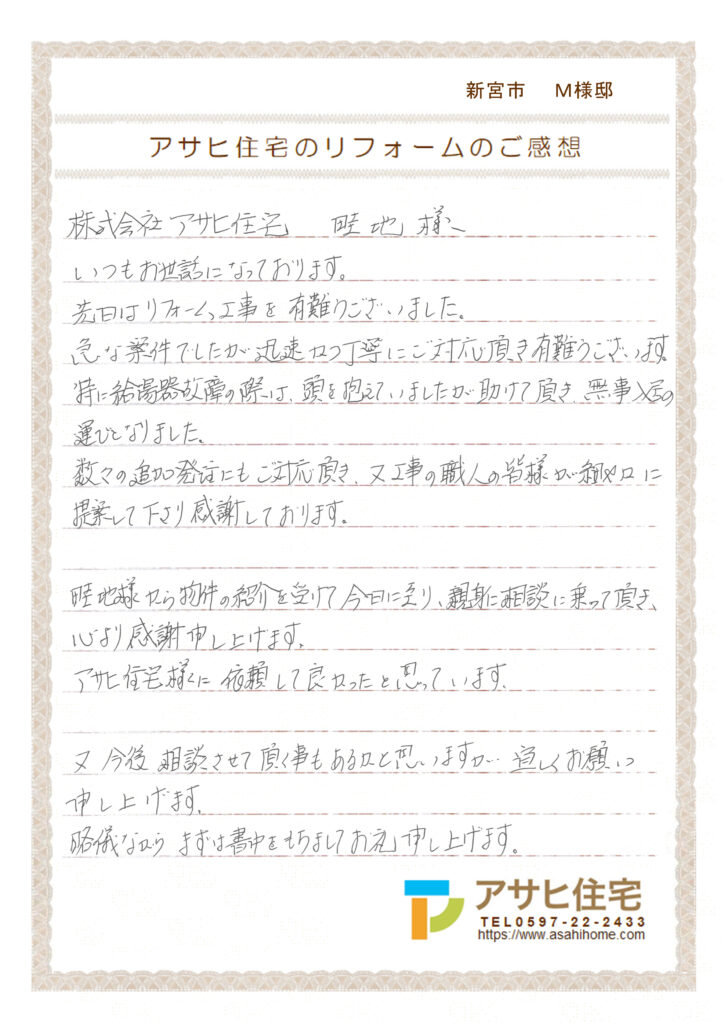 新宮市 M様邸
アサヒ住宅のリフォームのご感想
株式会社アサヒ住宅 畦地様へ
いつもお世話になっております。
先日はリフォーム工事を有難うございました。
急な案件でしたが迅速かつ丁寧にご対応頂き有難うございます。
特に給湯器故障の際は、頭を抱えていましたが助けて頂き、無事入居の
運びとなりました。
数々の追加発注にもご対応頂き、又工事の職人の皆様が細やかに
提案して下さり感謝しております。
畦地様から物件の紹介を受けて今日に至り、親身に相談に乗って頂き、
心より感謝申し上げます。
アサヒ住宅様に依頼して良かったと思っています。
又今後相談させて頂く事もあるかと思いますが、宜しくお願い
申し上げます。
略儀ながらまずは書中をもちましてお礼申し上げます。
アサヒ住宅
TEL0597-22-2433
https://www.asahihome.com